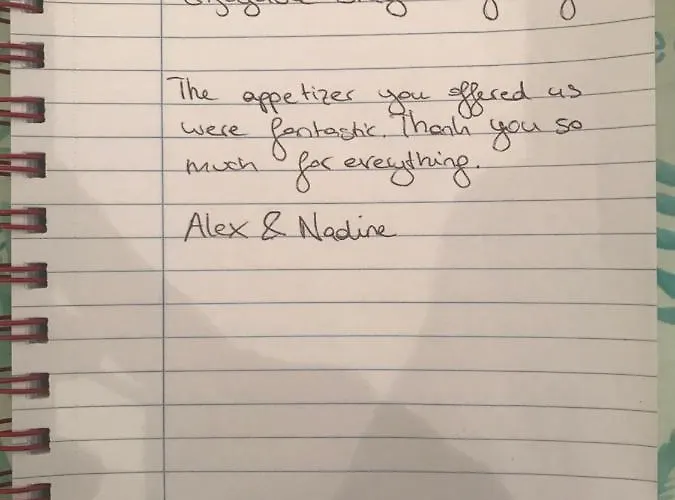 The appetizer you offered us
were fantastic. Thank you so
much for everything.
Alex & Nadine